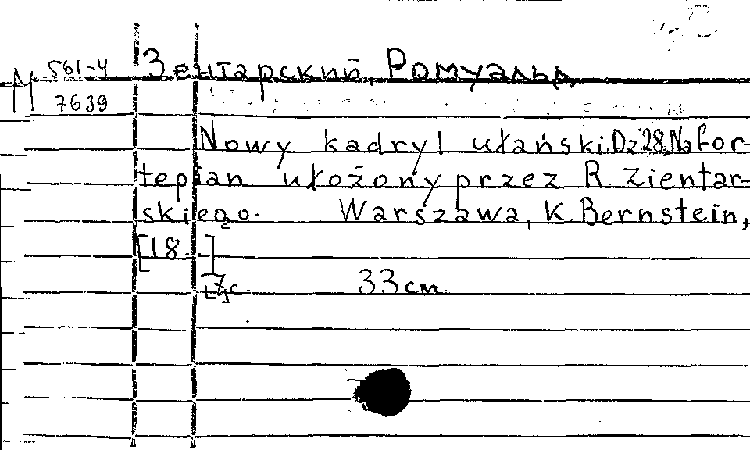 М 561-4 Зентарский, Ромуальд
7639
Nowy kadryl ułański. Dz.28. Na for-
tepian ułożony przez R. Zientar-
skiego. Warszawa, K. Bernstein,
[18 ]
33 cm